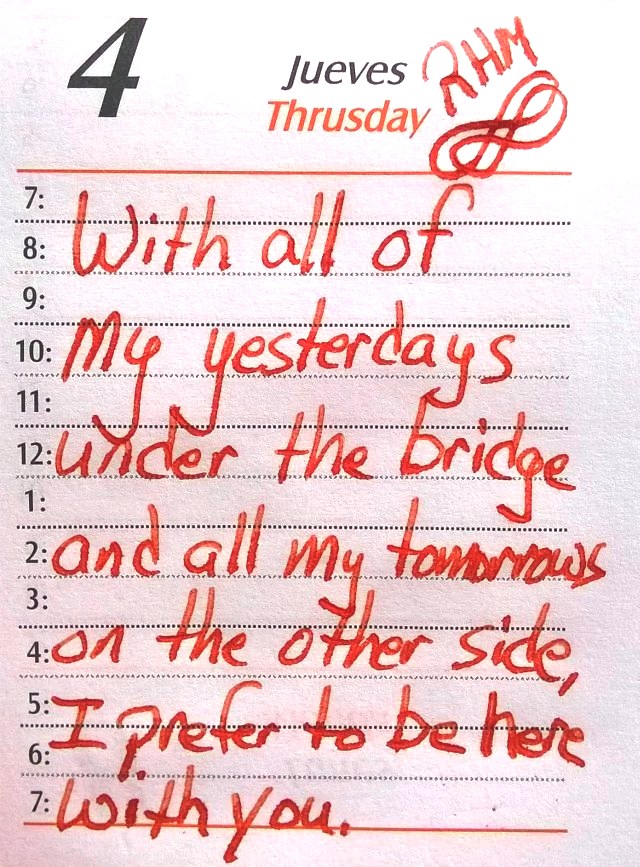 4
Jueves
Thrusday
RHM
7:
With all of
8:
9:
My yesterdays
10:
11:
under the bridge
12:
1:
and all my tomorrows
2:
3:
on the other side,
4:
5:
I prefer to be here
6:
with you.
7: